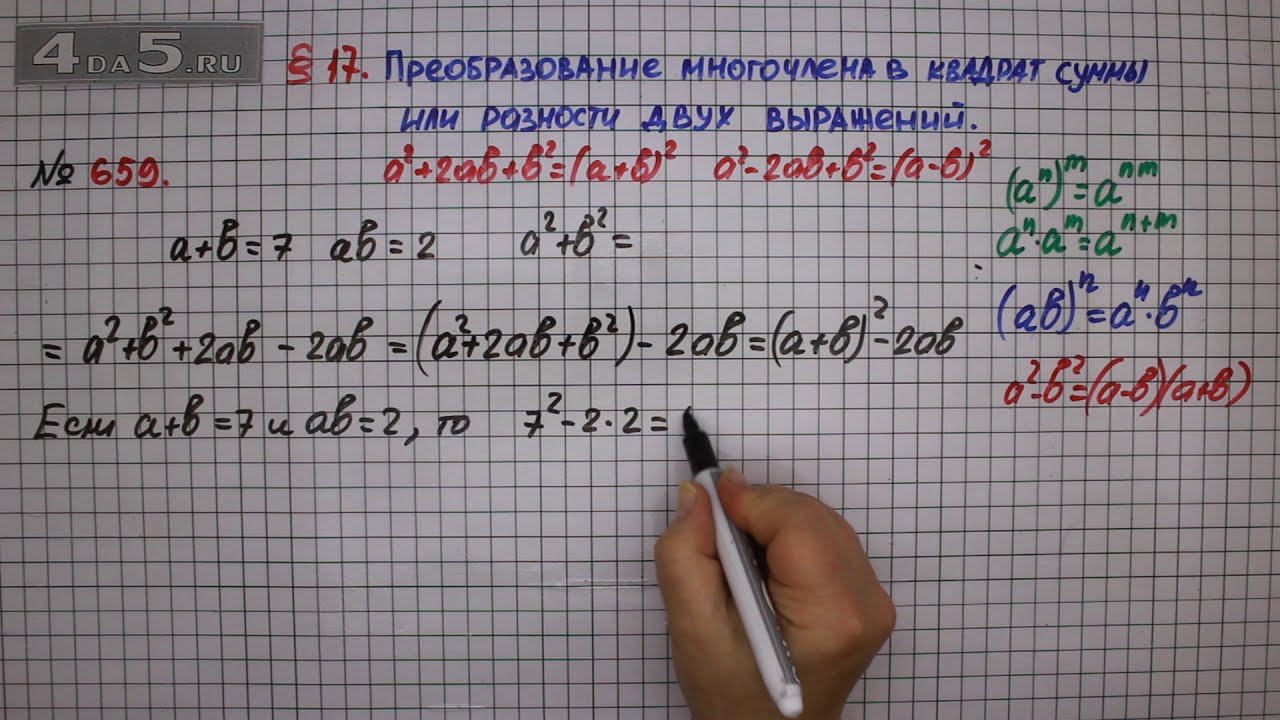 4DA5.RU
§ 17. Преобразование многочлена в квадрат суммы
или разности двух выражений.
№ 659.
a²+2ab+b²=(a+b)² a²-2ab+b²=(a-b)²
(aⁿ)ᵐ=aⁿᵐ
a+b=7 ab=2 a²+b²=
aⁿ·aᵐ=aⁿ⁺ᵐ
(ab)ⁿ=aⁿ·bⁿ
= a²+b²+2ab-2ab=(a²+2ab+b²)-2ab=(a+b)²-2ab
a²-b²=(a-b)(a+b)
Если a+b=7 и ab=2, то 7²-2·2=